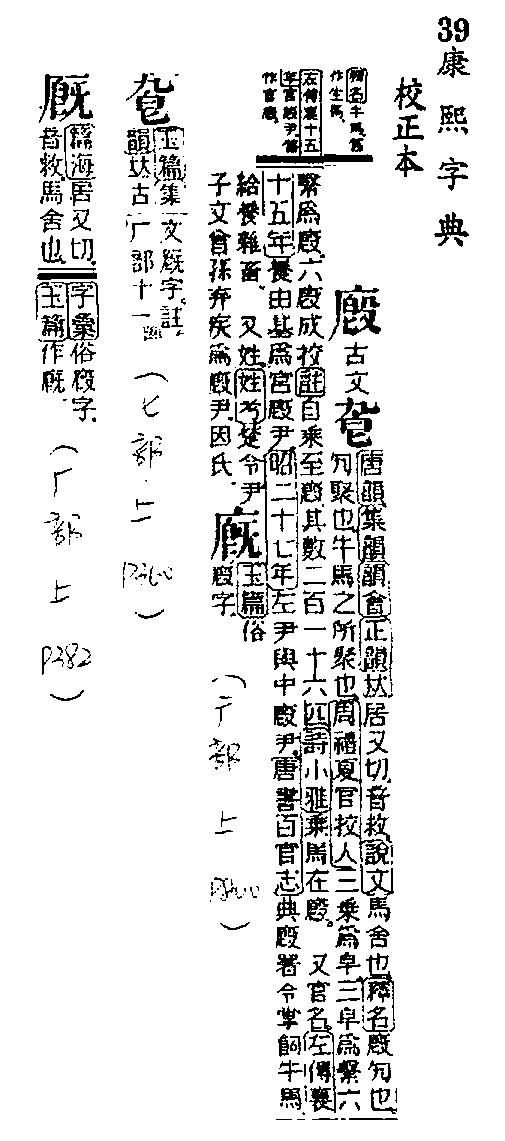 39康熙字典
校正本
廏 古文
唐韻集韻韻會正韻𠀤居又切音救說文馬舍也釋名廏勼也
勼聚也牛馬之所聚也周禮夏官校人三乗爲皁三皁爲繫六
繫爲廏六廏成校註自乗至廏其數二百一十六匹詩小雅乗馬在廏。又官名左傳襄
十五年養由基爲宮廏尹昭二十七年左尹與中廏尹唐書百官志典廏署令掌飼牛馬
給養雜畜。又姓姓考楚令尹
子文曾孫弃疾爲廏尹因氏
廐
玉篇俗
廏字
(广部 上)
釋名牛馬舊
作生馬
左傳襄十五
年宮廏尹舊
作官廏
玉篇集
韻𠀤古
文廐字註
厂部十一
(匕部上 P360)
厩
篇海居又切
音救馬舍也
字彙俗廏字
玉篇作廐
(厂部上 P382)